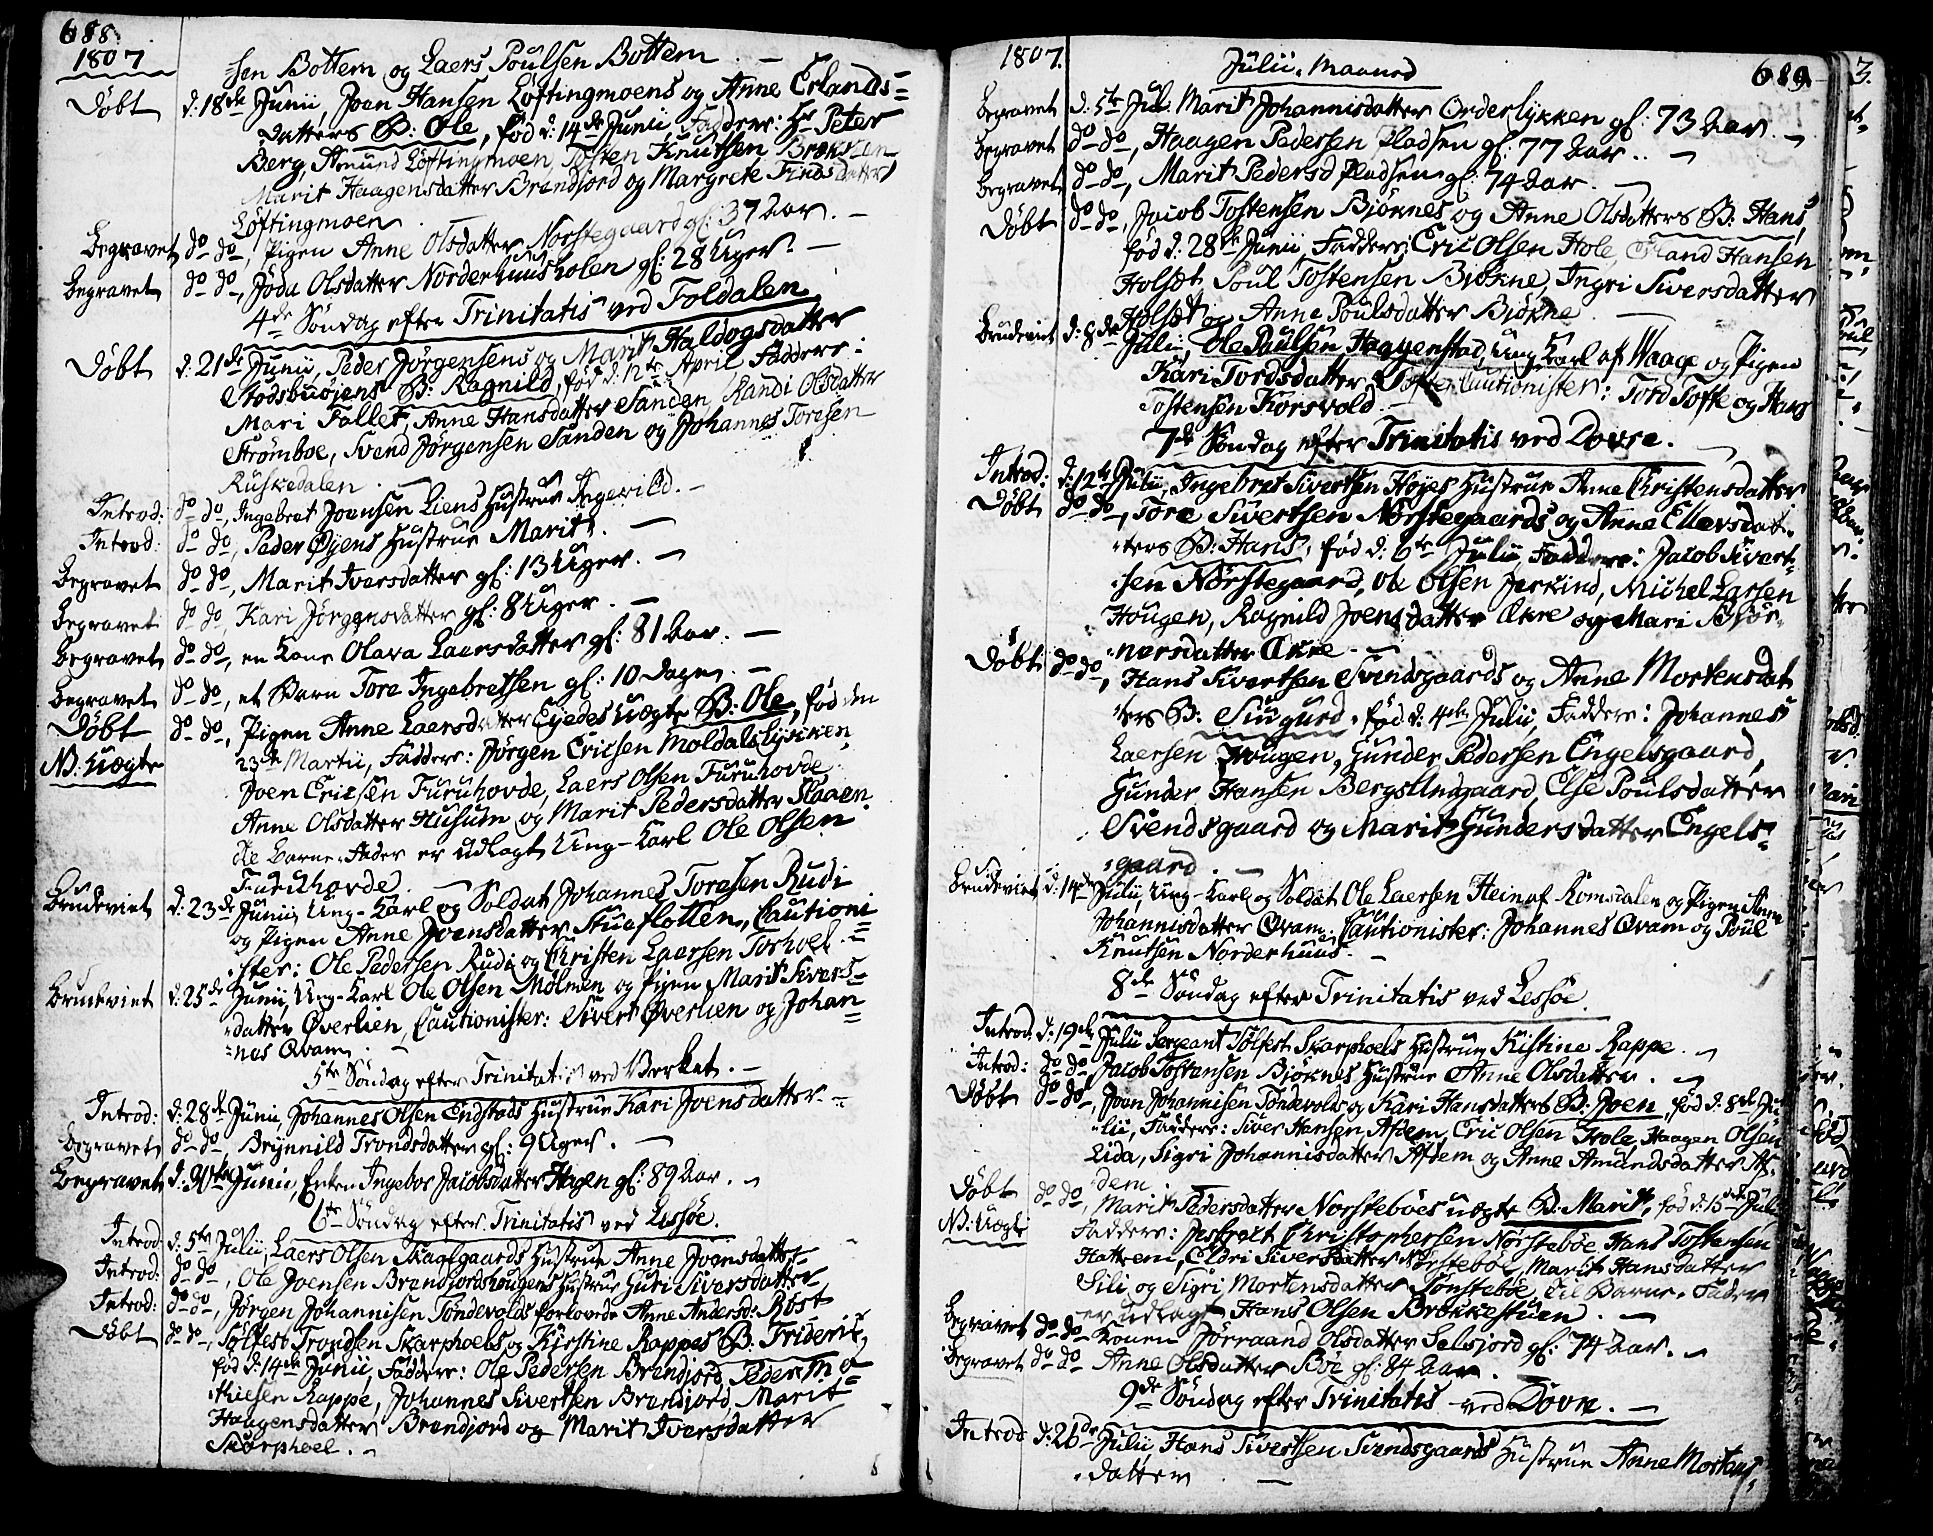 688.
1807
sen Bottem og Laers Poulsen Bottem. —
Døbt d: 18de Junii, Joen Hansen Løftingmoens og Anne Erlands-
datters B: Ole, fød d: 14de Junii, Faddere: Hr Peter
Berg, Amund Løftingmoen, Tosten Knutsen
Marit Haagensdatter Brendjord og Margrete Findsdatter
Løftingmoen.
Begravet do do, Pigen Anne Olsdatter Norstegaard gl: 37 Aar. —
Begravet do do, Jøda Olsdatter Norderhuusholen gl: 28 Uger. —
4de Søndag efter Trinitatis ved Foldalen
Døbt d: 21de Junii, Peder Jørgensens og Marit Haldogsdatter
Stodsbuøjens B: Ragnild, fød d: 12te April Faddere:
Mari Follet, Anne Hansdatter Sanden, Randi Olsdatter
Strømboe, Svend Jørgensen Sanden og Johannes Toresen
Ruskedalen. —
Introd: do do, Ingebret Joensen Liens Hustrue Ingevild. —
Introd: do do, Peder Øyens Hustrue Marit. —
Begravet do do, Marit Iversdatter gl: 13 Uger. —
Begravet do do, Kari Jørgensdatter gl: 8 Uger. —
Begravet do do, en Kone Olava Laersdatter gl: 81 Aar. —
Begravet do do, et Barn Tore Ingebretsen gl: 10 Dage. —
Døbt do do, Pigen Anne Laersdatter Eyedes uægte B: Ole, fød den
N: Uægte 23de Martii, Faddere: Jørgen Ericsen Moldalslykken,
Joen Ericsen Furuhovde, Laers Olsen Furuhovde
Anne Olsdatter Husum og Marit Pedersdatter Slaaen.
til Barne-Fader er udlagt Ung-Karl Ole Olsen
Furuhovde. —
Brudeviet d: 23de Junii, Ung-Karl og Soldat Johannes Toresen Rudi
og Pigen Anne Joensdatter Stuaflotten, Cautioni-
ster: Ole Pedersen Rudi og Christen Laersen Torhoel. —
Brudeviet d: 25de Junii, Ung-Karl Ole Olsen Mølmen og Pigen Marit Sivers-
datter Øverlien, Cautionister: Sivert Øverlien og Johan-
nes Qvam. —
5te Søndag efter Trinitatis ved Verket. —
Introd: d: 28de Junii Johannes Olsen Endstads Hustrue Kari Joensdatter. —
Begravet do do Brynnild Trondsdatter gl: 9 Uger. —
Begravet d: 30te Junii, Enken Ingebor Jacobsdatter Hagen gl: 89 Aar. —
6te Søndag efter Trinitatis ved Lessøe.
Introd: d: 5te Julii, Laers Olsen Skaglgaards Hustrue Anne Joensdatter —
Introd: do do, Ole Joensen Brendjordshougens Hustrue Guri Siversdatter
Introd: do do, Jørgen Johannisen Tøndevolds forlovede Anne Andersd: Røst
Døbt do do, Tolfest Trondsen Skarphoels og Kirstine Rappes B: Frideric,
fød d: 14de Junii, Faddere: Ole Pedersen Brendjord, Peder Ma-
thiesen Rappe, Johannes Sivertsen Brendjord, Marit
Haagensdatter Brendjord og Marit Iversdatter
Skarphoel. —
1807.
Julii Maaned
689.
Begravet d: 5te Jul: Marit Johannisdatter Orderlykken gl: 73 Aar. —
Begravet do do, Haagen Pedersen Pladsen gl: 77 Aar. —
Begravet do do, Marit Pedersd Pladsen gl: 74 Aar. —
Døbt do do, Jacob Tostensen Bjøknes og Anne Olsdatters B: Hans,
fød d: 28de Junii, Faddere: Eric Olsen Hole, Erland Hansen
Holset, Poul Tostensen Bjøkne, Ingri Siversdatter
Holset og Anne Poulsdatter Bjøkne. —
Brudeviet d: 8de Julii Ole Paulsen Haagenstad, Ung Karl af Waage og Pigen
Kari Tordsdatter Tofte, Cautionister: Tord Tofte og Hans
Tostensen Korsvold. —
7de Søndag efter Trinitatis ved Dovre. —
Introd: d: 12te Julii, Ingebret Sivertsen Høyes Hustrue Anne Christensdatter
Døbt do do, Tore Sivertsen Norstegaards og Anne Ellevsdat-
ters B: Hans, fød d: 6te Julii, Faddere: Jacob Sivert-
sen Nørstegaard, Ole Olsen Jerkind, Michel Larsen
Hougen, Ragnild Joensdatter Økre og Mari Bjør-
norsdatter Økre. —
Døbt do do, Hans Sivertsen Svendsgaards og Anne Mortensdat
ters B: Siugurd, fød d: 4de Julii, Faddere: Johannes
Laersen Hougen, Gunder Pedersen Engelsgaard,
Gunder Hansen Bergslindgaard, Else Poulsdatter
Svendsgaard og Marit Gundersdatter Engels-
gaard. —
Brudeviet d: 14de Julii, Ung-Karl og Soldat Ole Laersen Hein af Romsdalen og Pigen Anne
Johannisdatter Qvam. Cautionister: Johannes Qvam og Poul
Knutsen Norderhuus. —
8de Søndag efter Trinitatis ved Lessøe.
Introd: d: 19de Julii Sergeant Tolfest Skarphoels Hustrue Kistine Rappe. —
Introd: do do Jacob Tostensen Bjøknes Hustrue Anne Olsdatter. —
Døbt do do, Joen Johannisen Tøndevolds og Kari Hansdatters B: Joen, fød d: 8de Ju-
lii, Faddere: Siver Hansen Afdem, Eric Olsen Hole, Haagen Olsen
Lida, Sigri Johannisdatter Afdem og Anne Amundsdatter Af-
dem.
Døbt do do, Marit Pedersdatter Norstebøes uægte B: Marit, fød d: 15de Juli
N: Uægte Faddere: Jesprelt Christophersen Nørstebøe, Hans Tostensen
Hattrem, Eldri Siversdatter Nørstebøe, Marit Hansdatter
Lili og Sigri Mortensdatter Tønstebøe, Til Barne-Fader
er udlagt Hans Olsen Brøkkestuen. —
Begravet do do Konen Jørraand Olsdatter Selsjord gl: 74 Aar. —
Begravet do do Anne Olsdatter Bøe gl: 84 Aar.
9de Søndag efter Trinitatis ved Dovre. —
Introd d: 26de Julii Hans Sivertsen Svendsgaards Hustrue Anne Mortens-
datter —